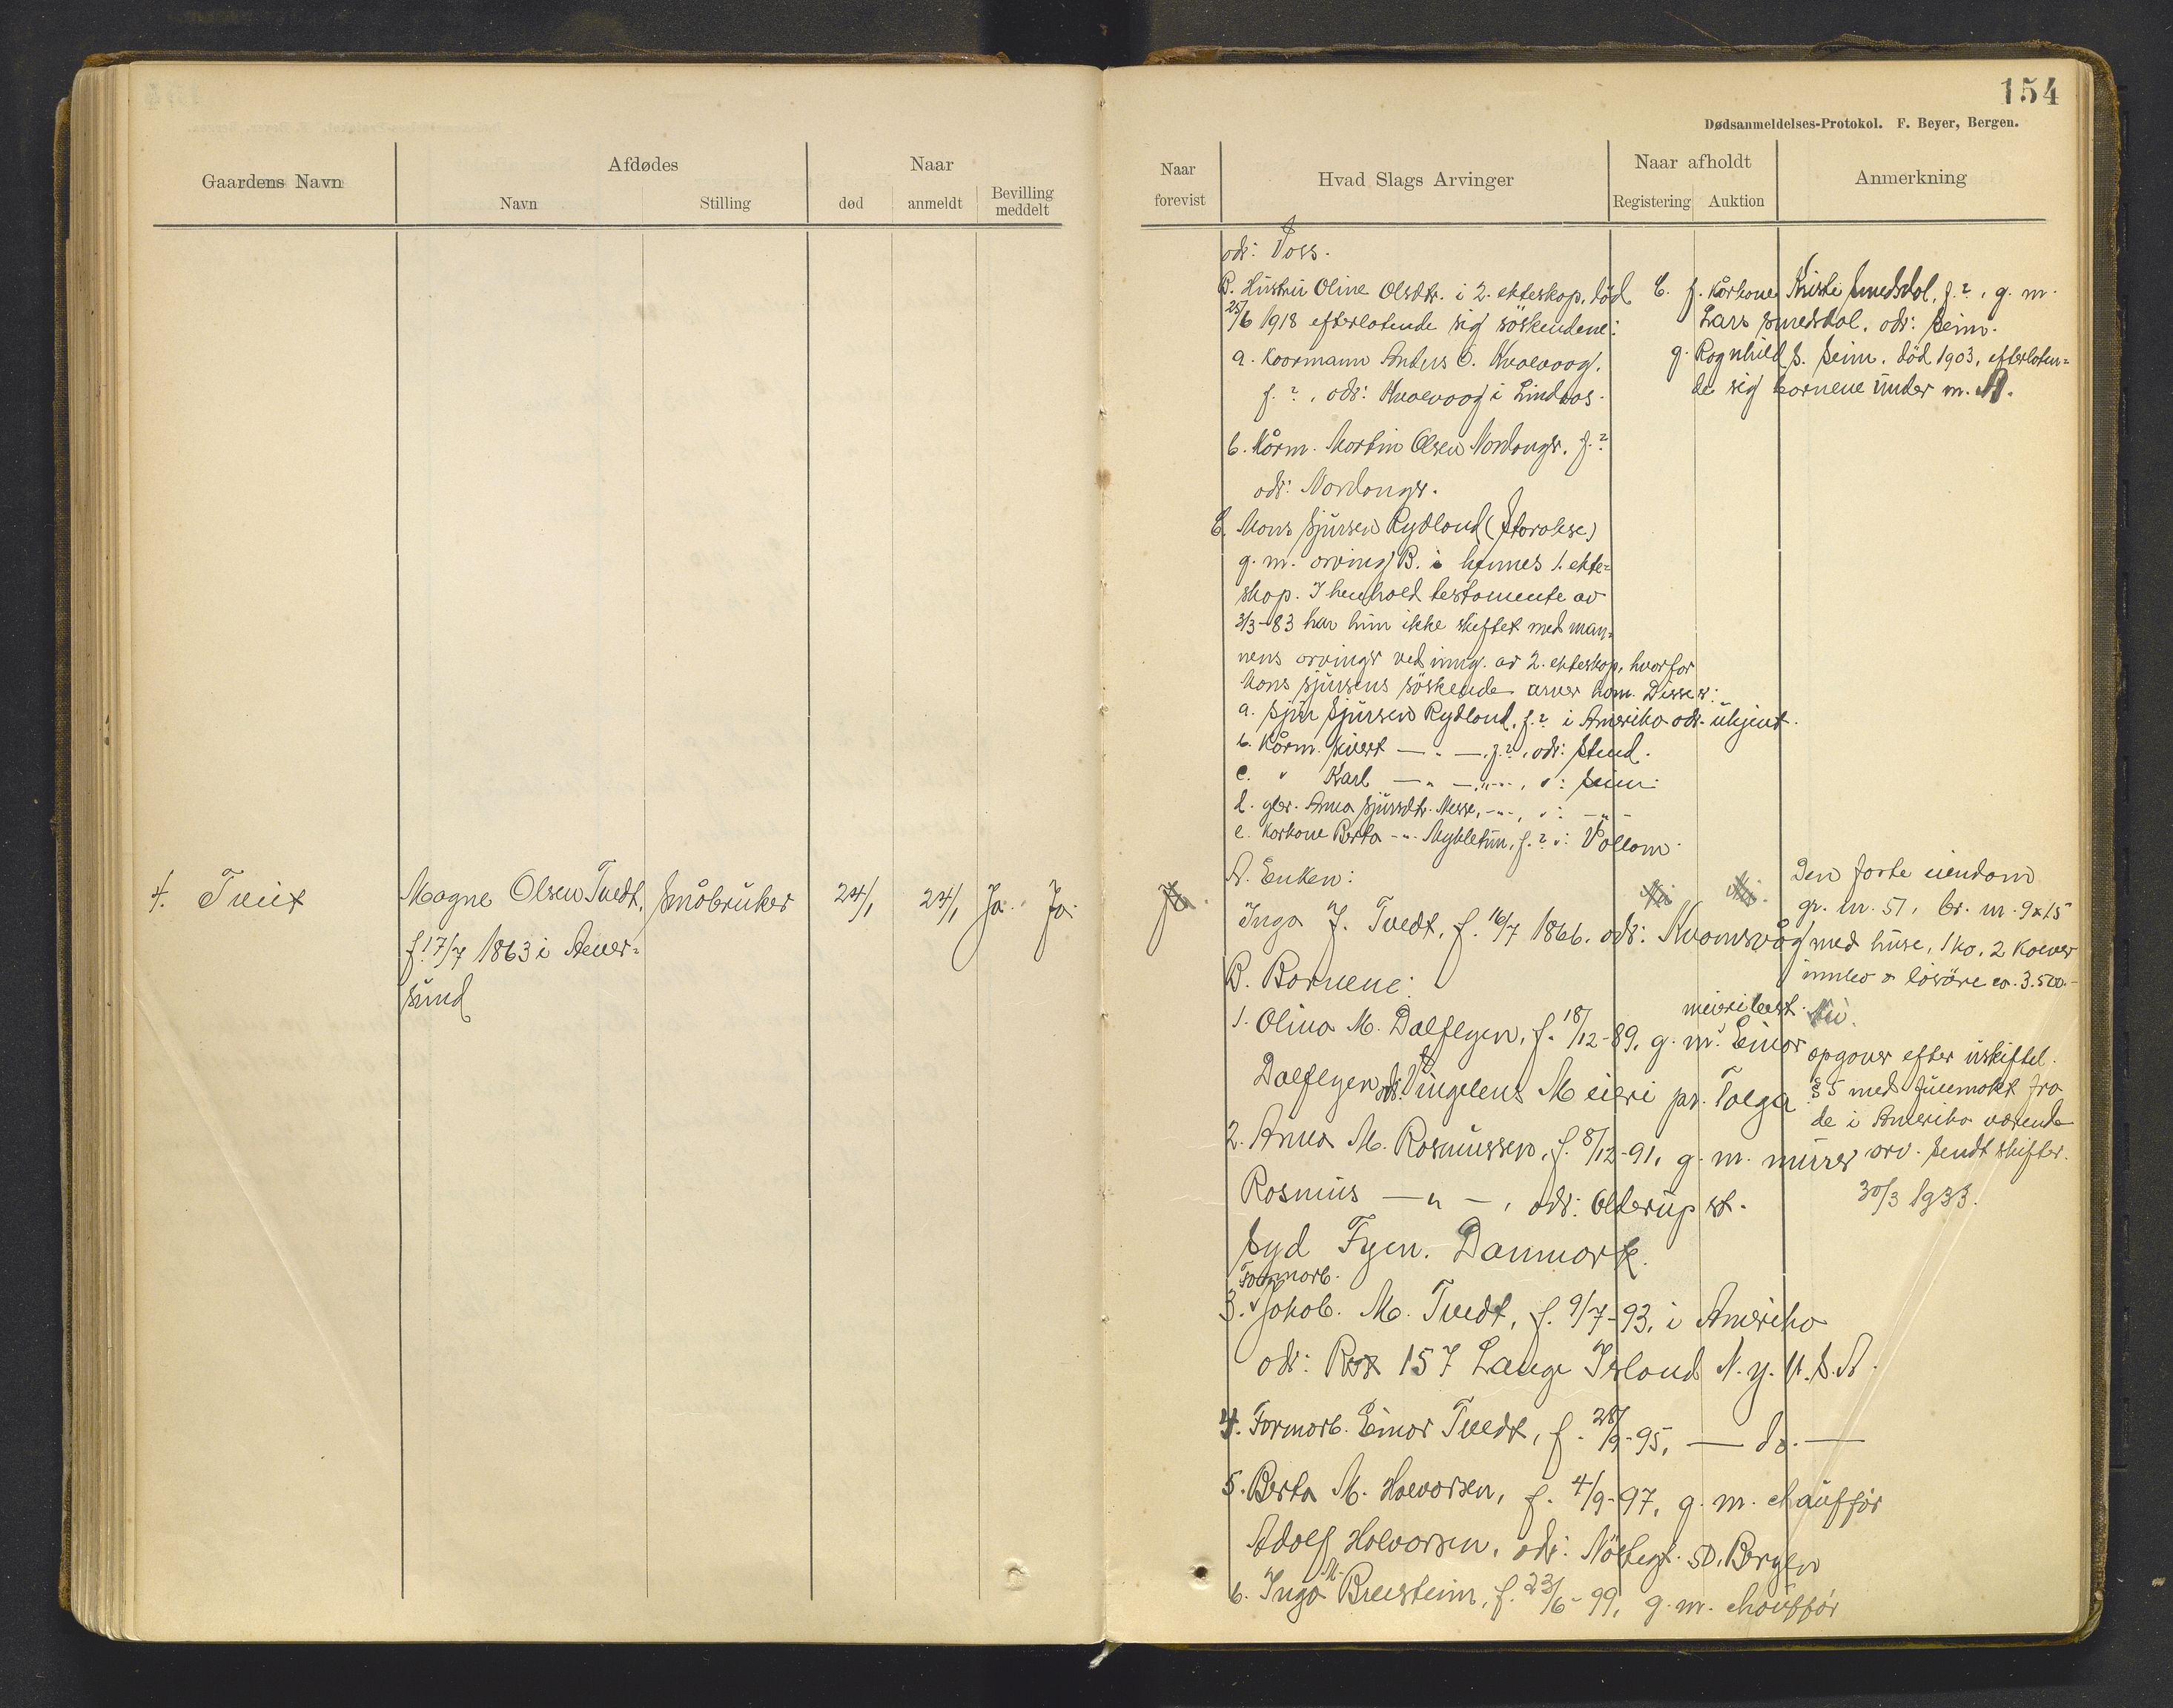 154
Dødsanmeldelses-Protokol. F. Beyer, Bergen.
Gaardens Navn
Afdødes
Navn
Stilling
Naar
død
anmeldt
Bevilling
meddelt
Naar
forevist
Hvad Slags Arvinger
Naar afholdt
Registering
Auktion
Anmerkning
adr: Voss.
B. Hustru Oline Olsdtr. i 2. ekteskap, død
25/6 1918 efterlatende sig söskendene:
a. Kaarmann Anders O. Kvalvaag,
f. ?, adr: Kvalvaag i Lindaas.
b. Kårm. Martin Olsen Nordanger. f. ?
adr: Nordanger.
C. Mons Sjursen Rydland (Storakse)
g. m. arving B. i hennes 1. ekte=
skap. I henhold testamente av
3/3-83 har hun ikke skiftet med man=
nens arvinger ved inng. av 2. ekteskap, hvorfor
Mons Sjursens söskende arver ham. Disse er:
a. Sjur Sjursen Rydland, f. ? i Amerika adr. ukjent.
b. Kårm. Sivert — " —, f. ?, adr: Stud.
c. " Karl — " — , " : Seim.
d. gbr. Anna Sjursdtr. Nesse, - " -, " : - " -
e. Karkone Berta - " - Mykletun, f. ? " : Vollom.
C. f. Kårkone Kirsti Smedsdal, f. ?, g. m.
Lars Smedsdal, adr: Seim.
g. Ragnhild S. Seim, död 1903, efterlaten=
de sig barnene under m. A.
4. Tveit
Magne Olsen Tvedt,
f. 17/7 1863 i Aever=
sund
Småbruker
24/1
24/1
Ja. Ja.
A. Enken:
Inga J. Tvedt, f. 16/7 1866, adr: Kvamsvåg
B. Barnene:
1. Olina M. Dalflyen, f. 18/12-89, g. m. Einar
meieribest.
Dalflyen adr: Vingelens Meieri pr. Tolga
2. Anna M. Rasmussen, f. 8/12-91, g. m. murer
Rasmus — " —, adr: Otterup st.
Syd Fyen. Danmark.
Farmarb.
3. Jakob. M. Tvedt, f. 9/7-93, i Amerika
adr: Box 157 Lange Island N. y. U. S. A.
4. Farmarb. Einar Tvedt, f. 28/9-95, — do. —
5. Berta M. Halvorsen, f. 4/9-97, g. m. chauffør
Adolf Halvorsen, adr: Nöstegt. 50, Bergen
6. Inga M. Breistein, f. 23/6-99, g. m. chauffør
Den faste eiendom
gr. nr. 51, br. nr. 9 x 15
med huse, 1 ko, 2 kalver
innbo & lösöre ca. 3.500.-
Nei.
opgaver efter uskiftel.
§ 5 med fullmakt fra
de i Amerika værende
arv. Sendt skifter.
30/3 1933.